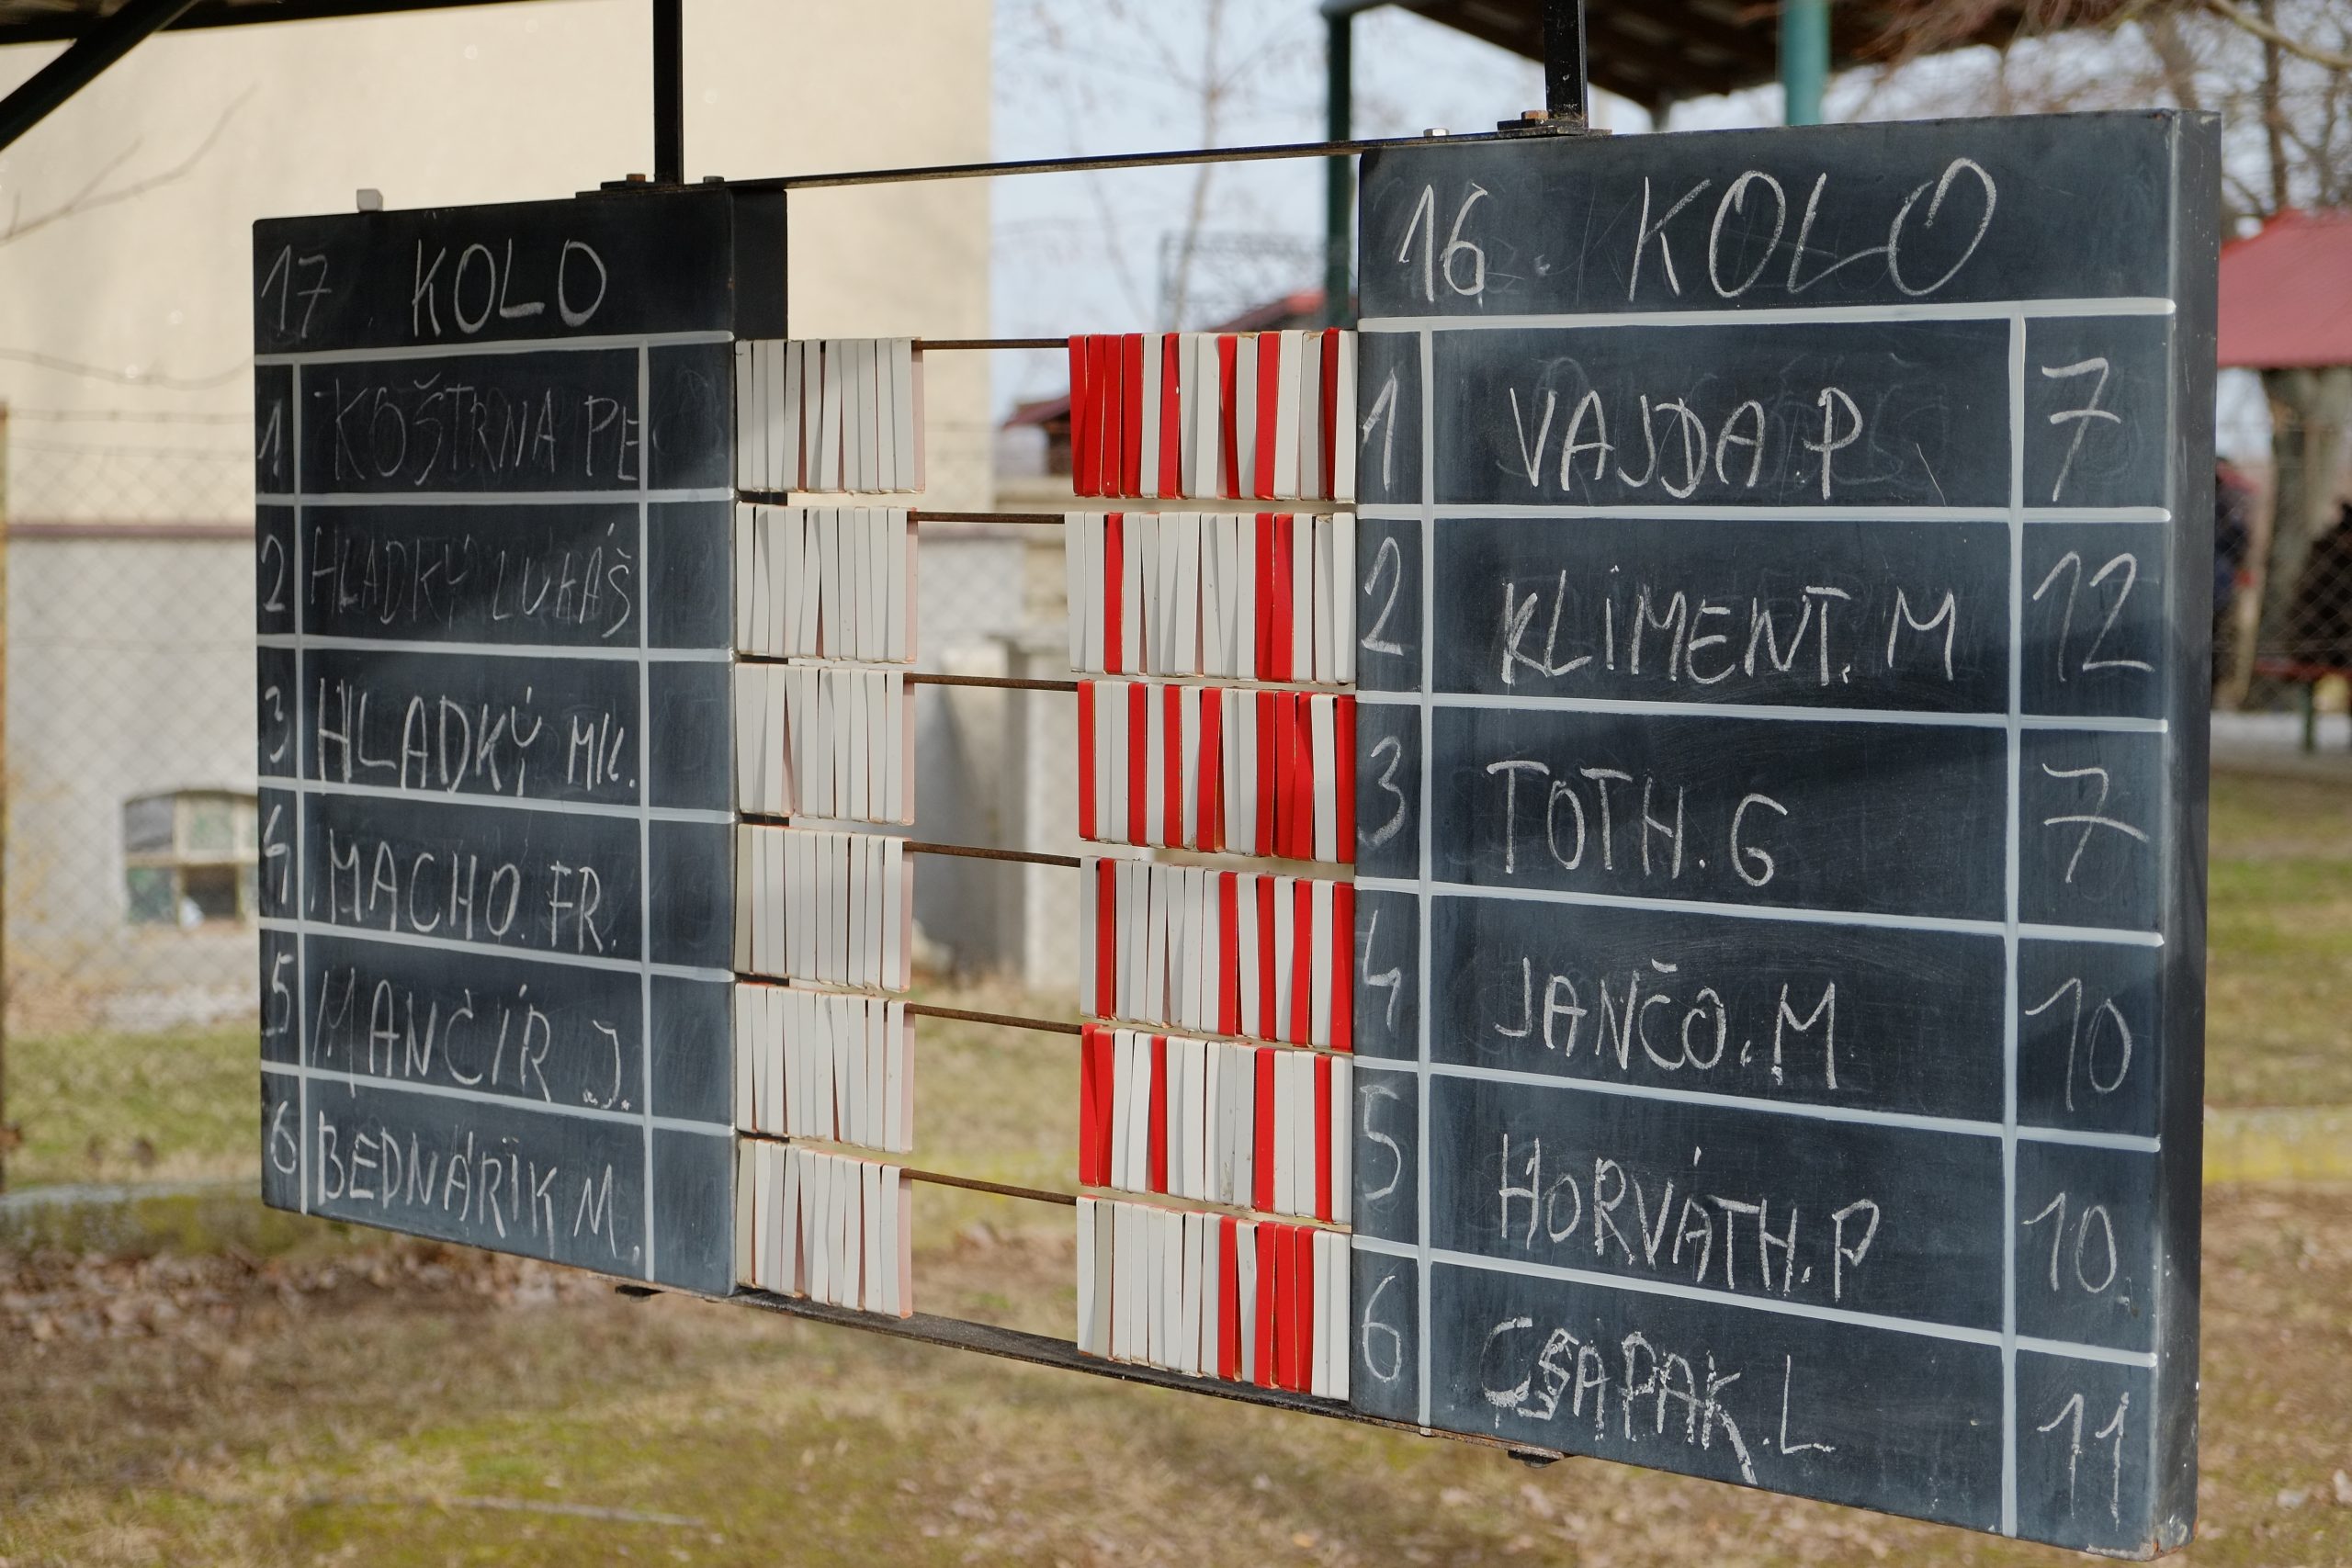 17. KOLO
1 KOŠTRNA PE
2 HLADKÝ LUKÁŠ
3 HLADKÝ MIL.
4 MACHO. FR.
5 MANČÍR J.
6 BEDNÁRIK M.
16 KOLO
1 VAJDA P 7
2 KLIMENT. M 12
3 TOTH. G 7
4 JANČO. M. 10
5 HORVÁTH. P 10
6 CSAPAK. L 11